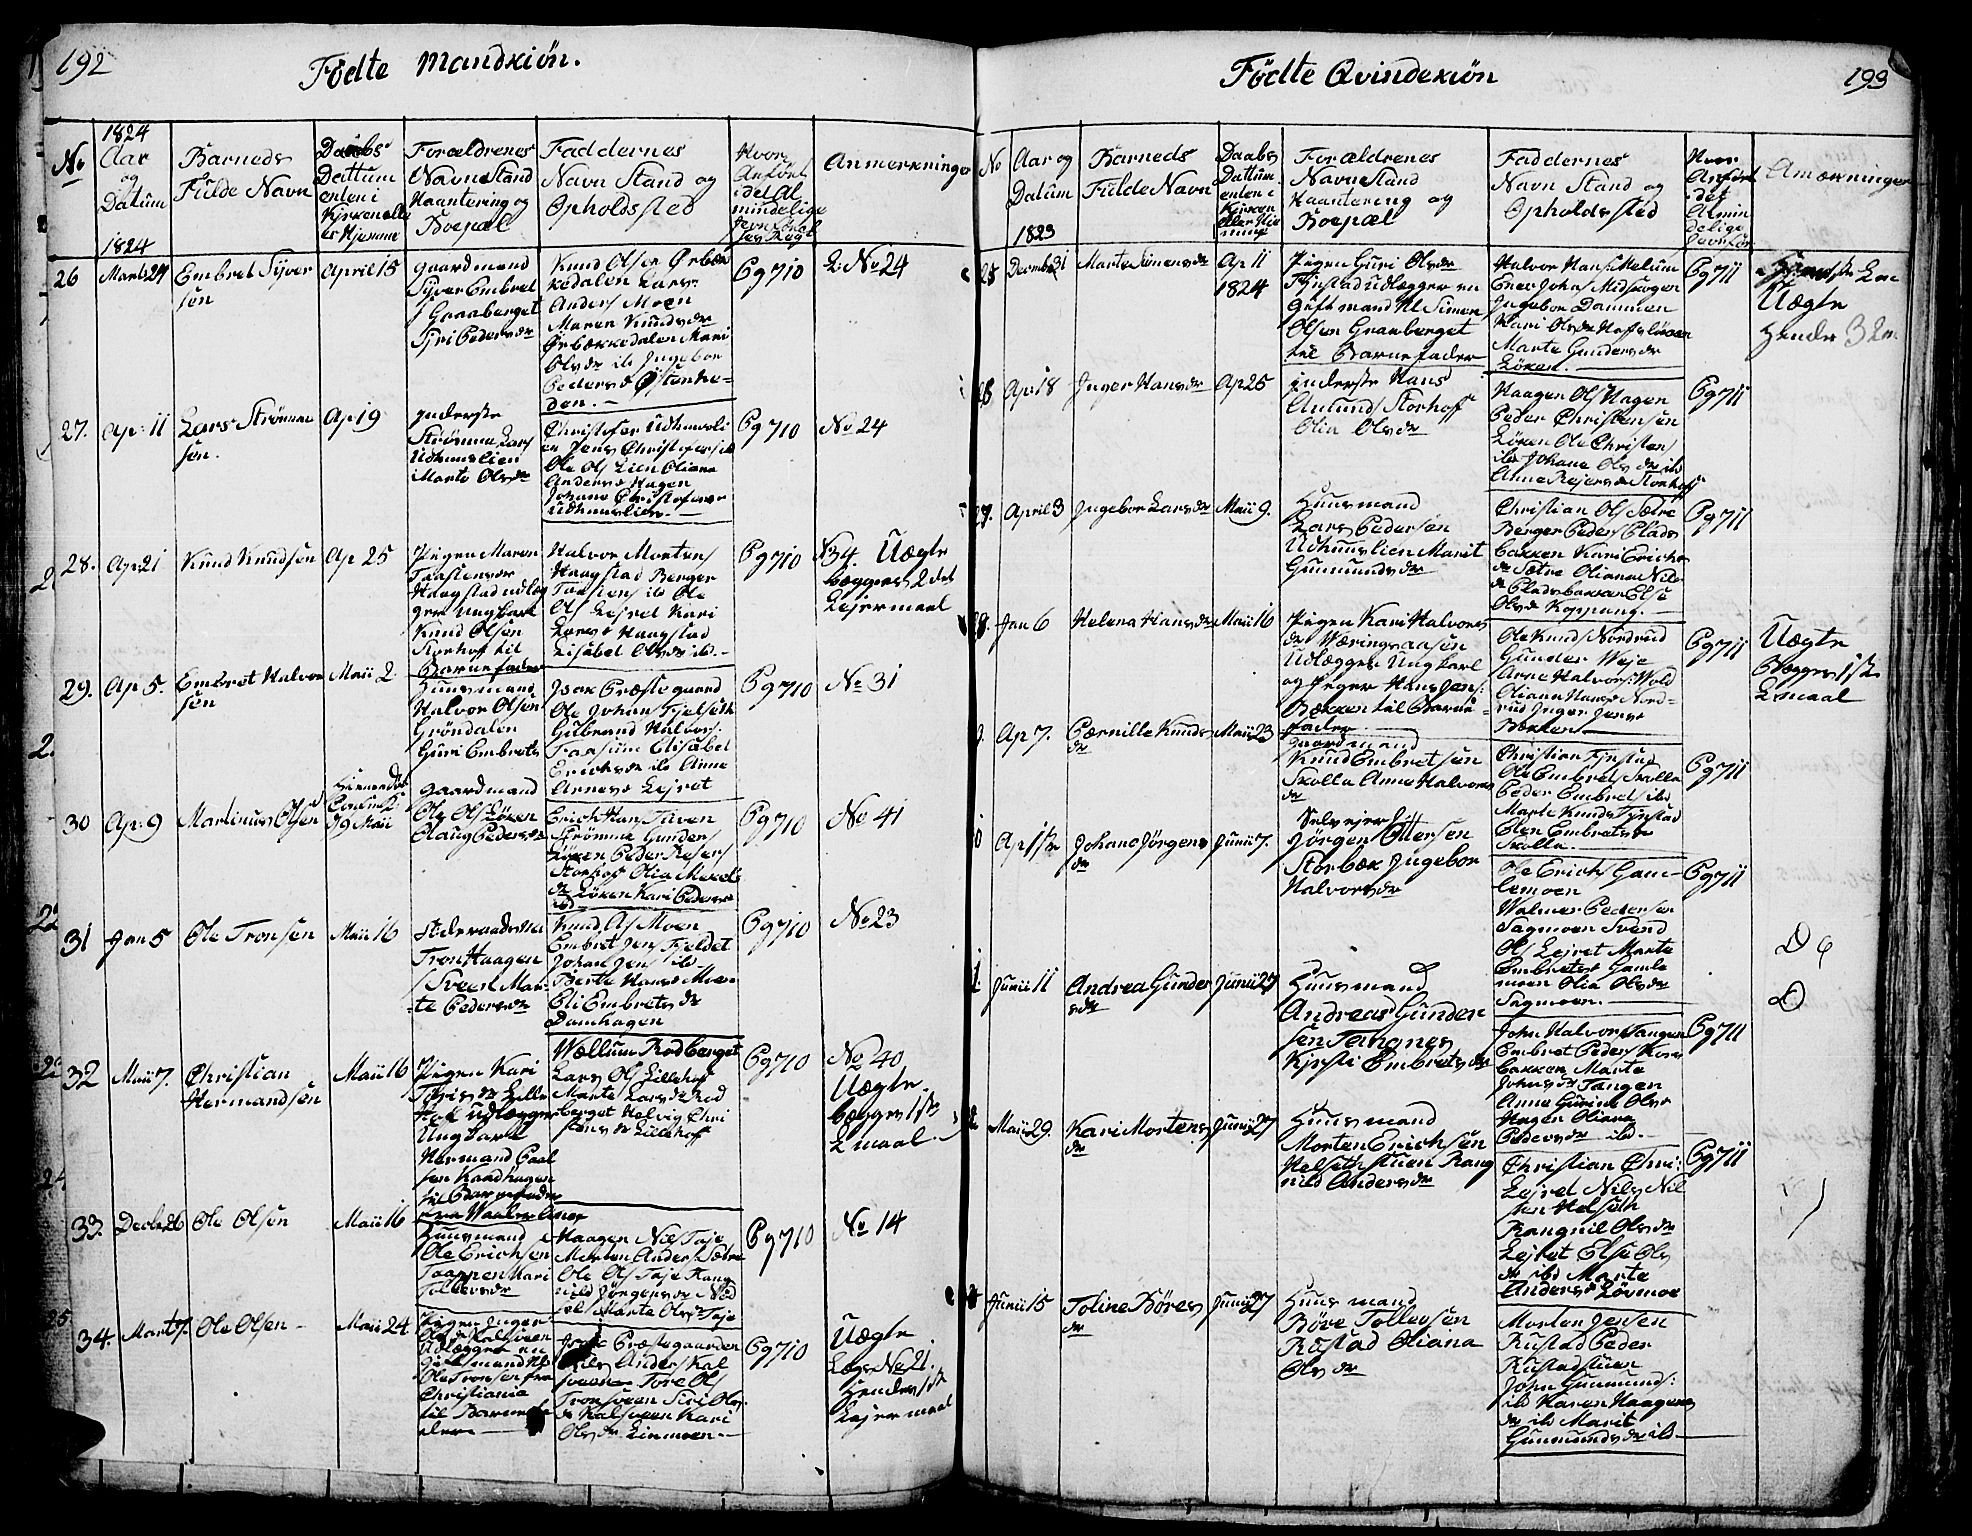 192
Födte Mandkiön.
1824
No
Aar
og
Datum
Barneds
Fulde Navn
Daabs
Dattum
enten i
Kjrken elle
er Hjemme
Forældrenes
Navne Stand
Haantering og
Boepæl
Faddernes
Navn Stand og
Opholdssted
Hvor
Anført
i det Al
mindelige
Anmerkninger
1824
26
Marts 24
Embret Syver
sen
April 15
Gaardmand
Syver Embret
s Graaberget
Siri Pedersdr
Knud Olsen Örbæk
kedalen Lars
Anders Moen
Maren Knudsdr
Örbækkedalen Mari
Olsdr ib Ingebor
Pedersd
den.
Pg 710
L. No 24
27.
Ap 11
Lars Strömme
sen.
Ap 19
Inderste
Strömme Lars
Udhuuslien
Marte Olsdr
Christofer Udhuusli
en Jens Christofers ib
Ole Ols Lien Oliana
Anders Hagen
Johane Christofers
Udhuuslien
Pg 710
No 24
28.
Ap 21
Knud Knudsön
Ap 25
Pigen Maren
Taastensdr
Haagstad udlæg
ger Ungkarl
Knud Olsen
Storhof til
Barnefader
Halvor Mortens
Haagstad Berger
Taastens ib Ole
Ols Lejret Kari
Larsd Haagstad
Lisabel Olsdr ib
Pg 710
N34. Uægte
begges 2det
Lejermaal
29.
Ap 5.
Embret Halvor
sen
Maii 2
Huusmand
Halvor Olsön
Gröndalen
Guri Embrets
Isak Præstegaard
Ole Johan Fjelseth
Gulbrand Halvors
Elisabel
Erichsdr ib Anne
Arnesd Lejret
Pg 710
No 31
30
Ap 9
Martinus Olsen
Hjemmedöbt
19 Maii
Gaardmand
Ole Ols Löken
Olaug Pedersdr
Erich Hans
Strömme Gunders
Löken Peder Rejers
Storhof Olia
dr Löken Kari Pedersdr
ibd
Pg 710
No 41
31
Jan 5
Ole Tronsen
Maii 16
Tron Haagen
s Sveen Mar-
te Pedersdr
Knud Ols Moen
Embret Jens Fjeldet
Johan Jens ib
Berte Hansd Moen
Eli Embretsdr
Damhagen
Pg 710
No 23
32
Maii 7.
Christian
Hermandsön
Maii 16
Pigen Kari
Hof udlægger
Ungkarl
Hermand Paal
sen Kaadhagen
til Barnefader
Rodberget
Lars Ols Lillehof
Marte Larsdr Rod
berget Helvig Chri
stensdr Lillehof
Pg 710
No 40
Uægte
begges 1ste
Lmaal
33.
Decbr 26
Ole Olsen
Maii 16
Huusmand
Ole Erichsen
Taappen Kari
Tollevsdr
Haagen Niels Taje
Morten Anders Sætre
Ole Ols Taje Rang
nild Jörgensdr
Marte Olsd Taje
Pg 710
No 14
34.
Marts 7.
Ole Olsen
Maii 24
Pigen Inger
Olsdr Kalsveen
Udlægger en
Giftmand Nl
Ole Tronsen fra
Christiania
til Barnefa
der
Præstegaarden
Nils Anders Kal
sveen Tore Ols
Tronsveen Siri Ols
dr Kalsveen Kari
Olsdr Linmoen
Pg 710
Uægte
Læs No 21.
Hendes 1ste
Lejermaal
193
Födte Qvindekiön
No
Aar og
Datum
Barneds
Fulde Navn
Daabs
Dattum
enten i
Kjrken
eller Hje
mme
Forældrenes
Navn Stand
Haantering og
Boepæl
Faddernes
Navn Stand og
Opholdssted
Hvor
Anfört
i det
Almin
delige
Anmærkninger
1823
25
Decembr 31
Marte Simensdr
Ap 11
1824
Pigen Guri Olsdr
Fynstad udlægger en
Giftmand Nl Simen
Olsen Graaberget
til Barnefader
Halvor Hans Melum
Ener Johns Midskogen
Ingebor Dammen
Kari Olsdr
Marte Gundersdr
Löken.
Pg 711
Uægte
Hendes 3 Lm
26
Ap 18
Inger Hansdr
Ap 25
Inderste Hans
Amunds Storhof
Olia Olsdr
Haagen Ols Hagen
Peder Christensen
Löken Ole Christens
ibd Johane Olsdr ib
Anne Rejersdr Storhof
Pg 711
27.
April 3
Ingebor Larsdr
Maii 9.
Huusmand
Lars Pedersen
Udhuuslien Marit
Gunmundsdr
Christian Ols Sætre
Berger Peders Plads
bakken Kari Erichs
dr Sætre Oliana Nils
dr Pladsbakken Else
Olsdr Koppang.
Pg 711
28.
Jan 6
Helena Hansdr
Maii 16
Pigen Kari Halvors
dr Wæringsaasen
Udlægger Ungkarl
og Hans Jens
Bekken til Barne-
fader
Ole Knuds Nordrud
Gunder Weje
Arne Halvors Wold
Oliana Hansd Nord-
rud Inger Jensd
Bekken
Pg 711
Uægte
Begges 1ste
Lmaal
Ap 7.
Pernille Knuds
dr
Maii 23
Gaardmand
Knud Embretsen
Skolla Anne Halvors
dr
Christian Fynstad
Ole Embrets Skolla
Peder Embrets ib
Marte Knuds Fynstad
Olea Embretsdr
Skolla
Pg 711
Ap 1ste
Johane Jörgens
dr
Junii 7.
Selvejer
Jörgen Ottersen
Storbæk Ingebor
Halvorsdr
Ole Erichs Gam-
lemoen
Walmer Pedersen
Sagmoen Svend
Ols Lejret Marte
Embretsd Gamle
moen Olia Olsdr
Sagmoen.
Pg 711
D 6
Junii 11
Andrea Gunder
sdr
Junii 27
Huusmand
Andreas Gunder
sen Tangnes
Kjersti Embretsdr
John Halvors Tangen
Embret Peders
bakken Marte
Johnsdr Tangen
Anne Olsd
Hagen Oliana
Pedersdr ibd.
Pg 711
D
Maii 29.
Kari Mortens
dr
Junii 27
Huusmand
Morten Erichsön
Helsethstuen Rang
nild Andersdr
Christian Chri:
Lejret Nils Nil
sen Helseth
Rangnil Olsdr
Lejret Else Ols
dr ibd Marte
Andersd Lövmoe
Pg 711
Junii 15
Toline Böres
dr
Junii 27
Huusmand
Böre Tollevsen
Rustad Oliana
Olsdr
Morten Jensen
Rustad Peder
Rustadstuen
John Gunmunds:
ib Karen Haagens
dr ib Marit
Gunmundsdr ib